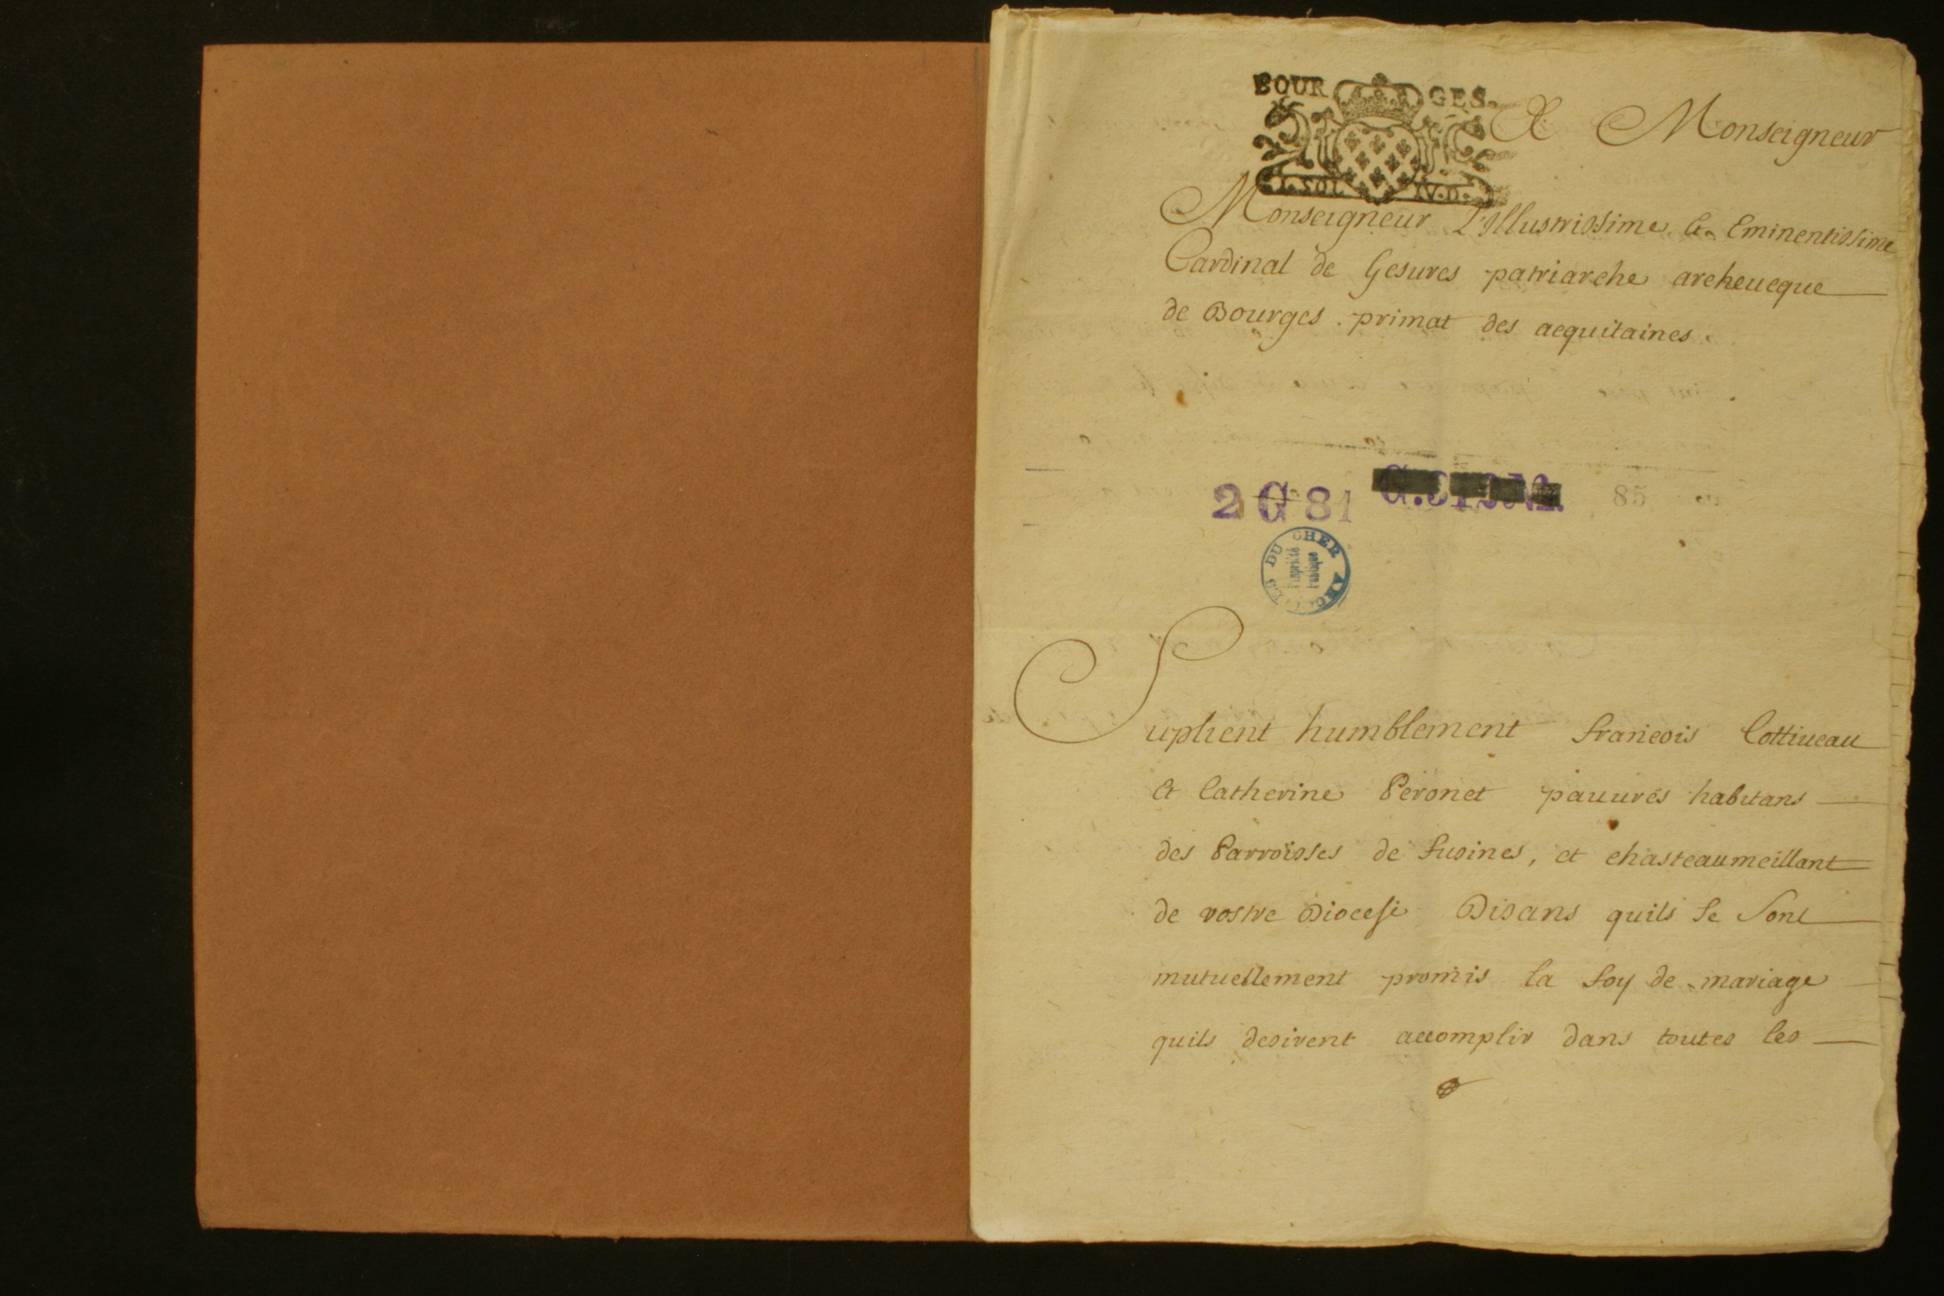 BOURGES.
A Monseigneur
I. SOL IV. D.
Monseigneur L'Illustrissime & Eminentissime
Cardinal de Gesvres patriarche archeueque
de Bourges . primat des acquitaines .
2 G 81
85
ARCHIVES DU CHER
Propriété
Publique
Suplient humblement francois Cottiueau
et Catherine Peronet pauures habitans
des Parroisses de Lusines, et chasteaumeillant
de vostre Diocese Disans quils se sont
mutuellement promis la foy de mariage
quils desirent accomplir dans toutes les